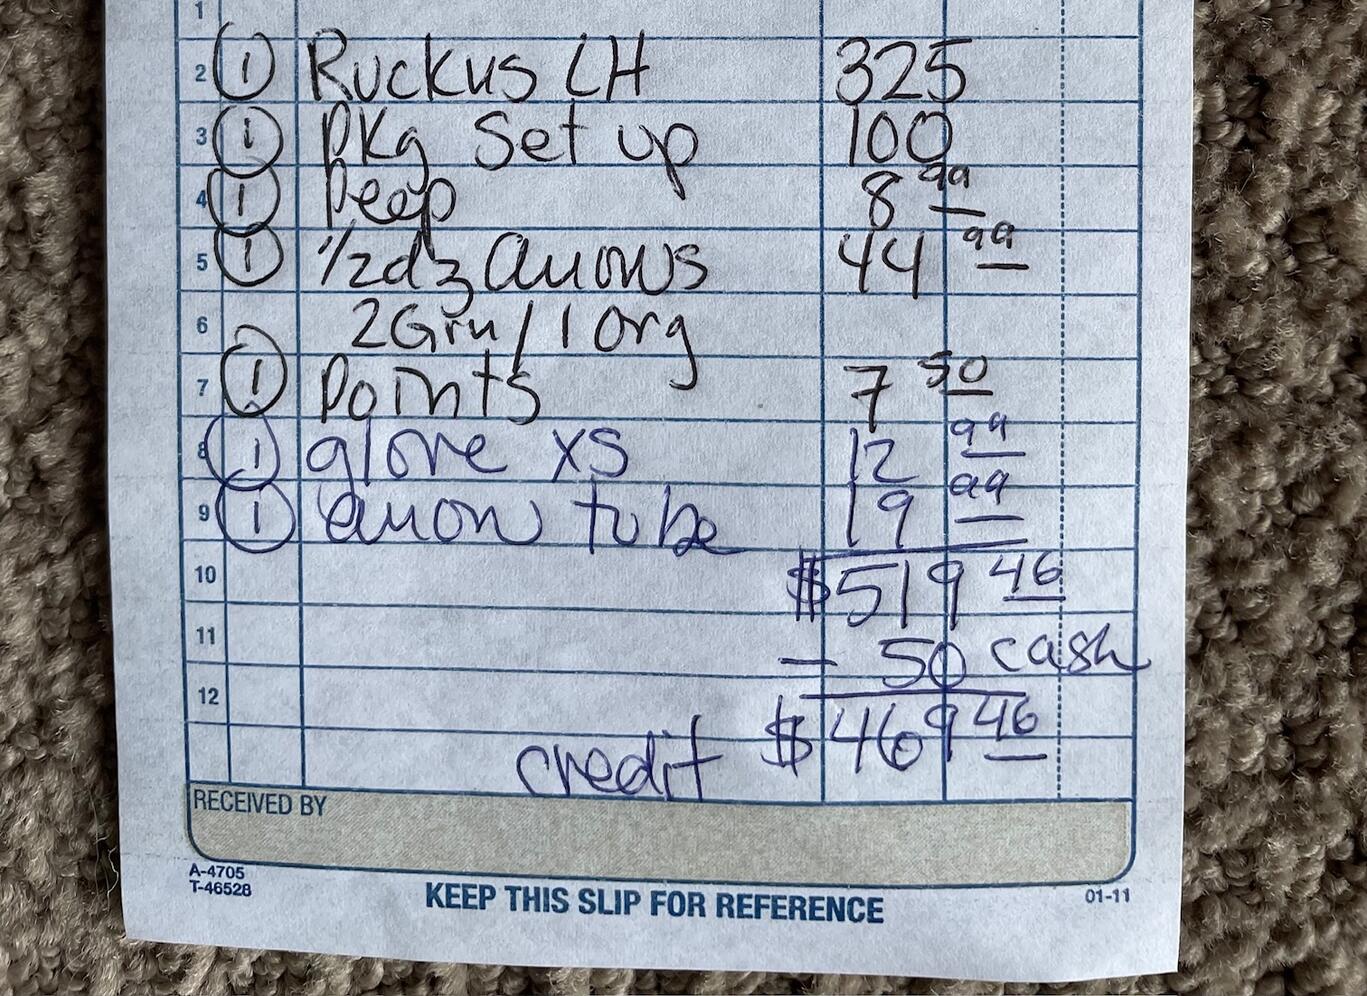 1
2 1 Ruckus LH 325
3 1 Pkg Set up 100
4 1 Peep 8 99
5 1 1/2dz Arrows 44 99
6 2Grn/1 Org
7 1 Points 7 50
8 1 glove XS 12 99
9 1 arrow tube 19 99
10 $519 46
11 - 50 cash
12 credit $469 46
RECEIVED BY
A-4705
T-46528
KEEP THIS SLIP FOR REFERENCE
01-11